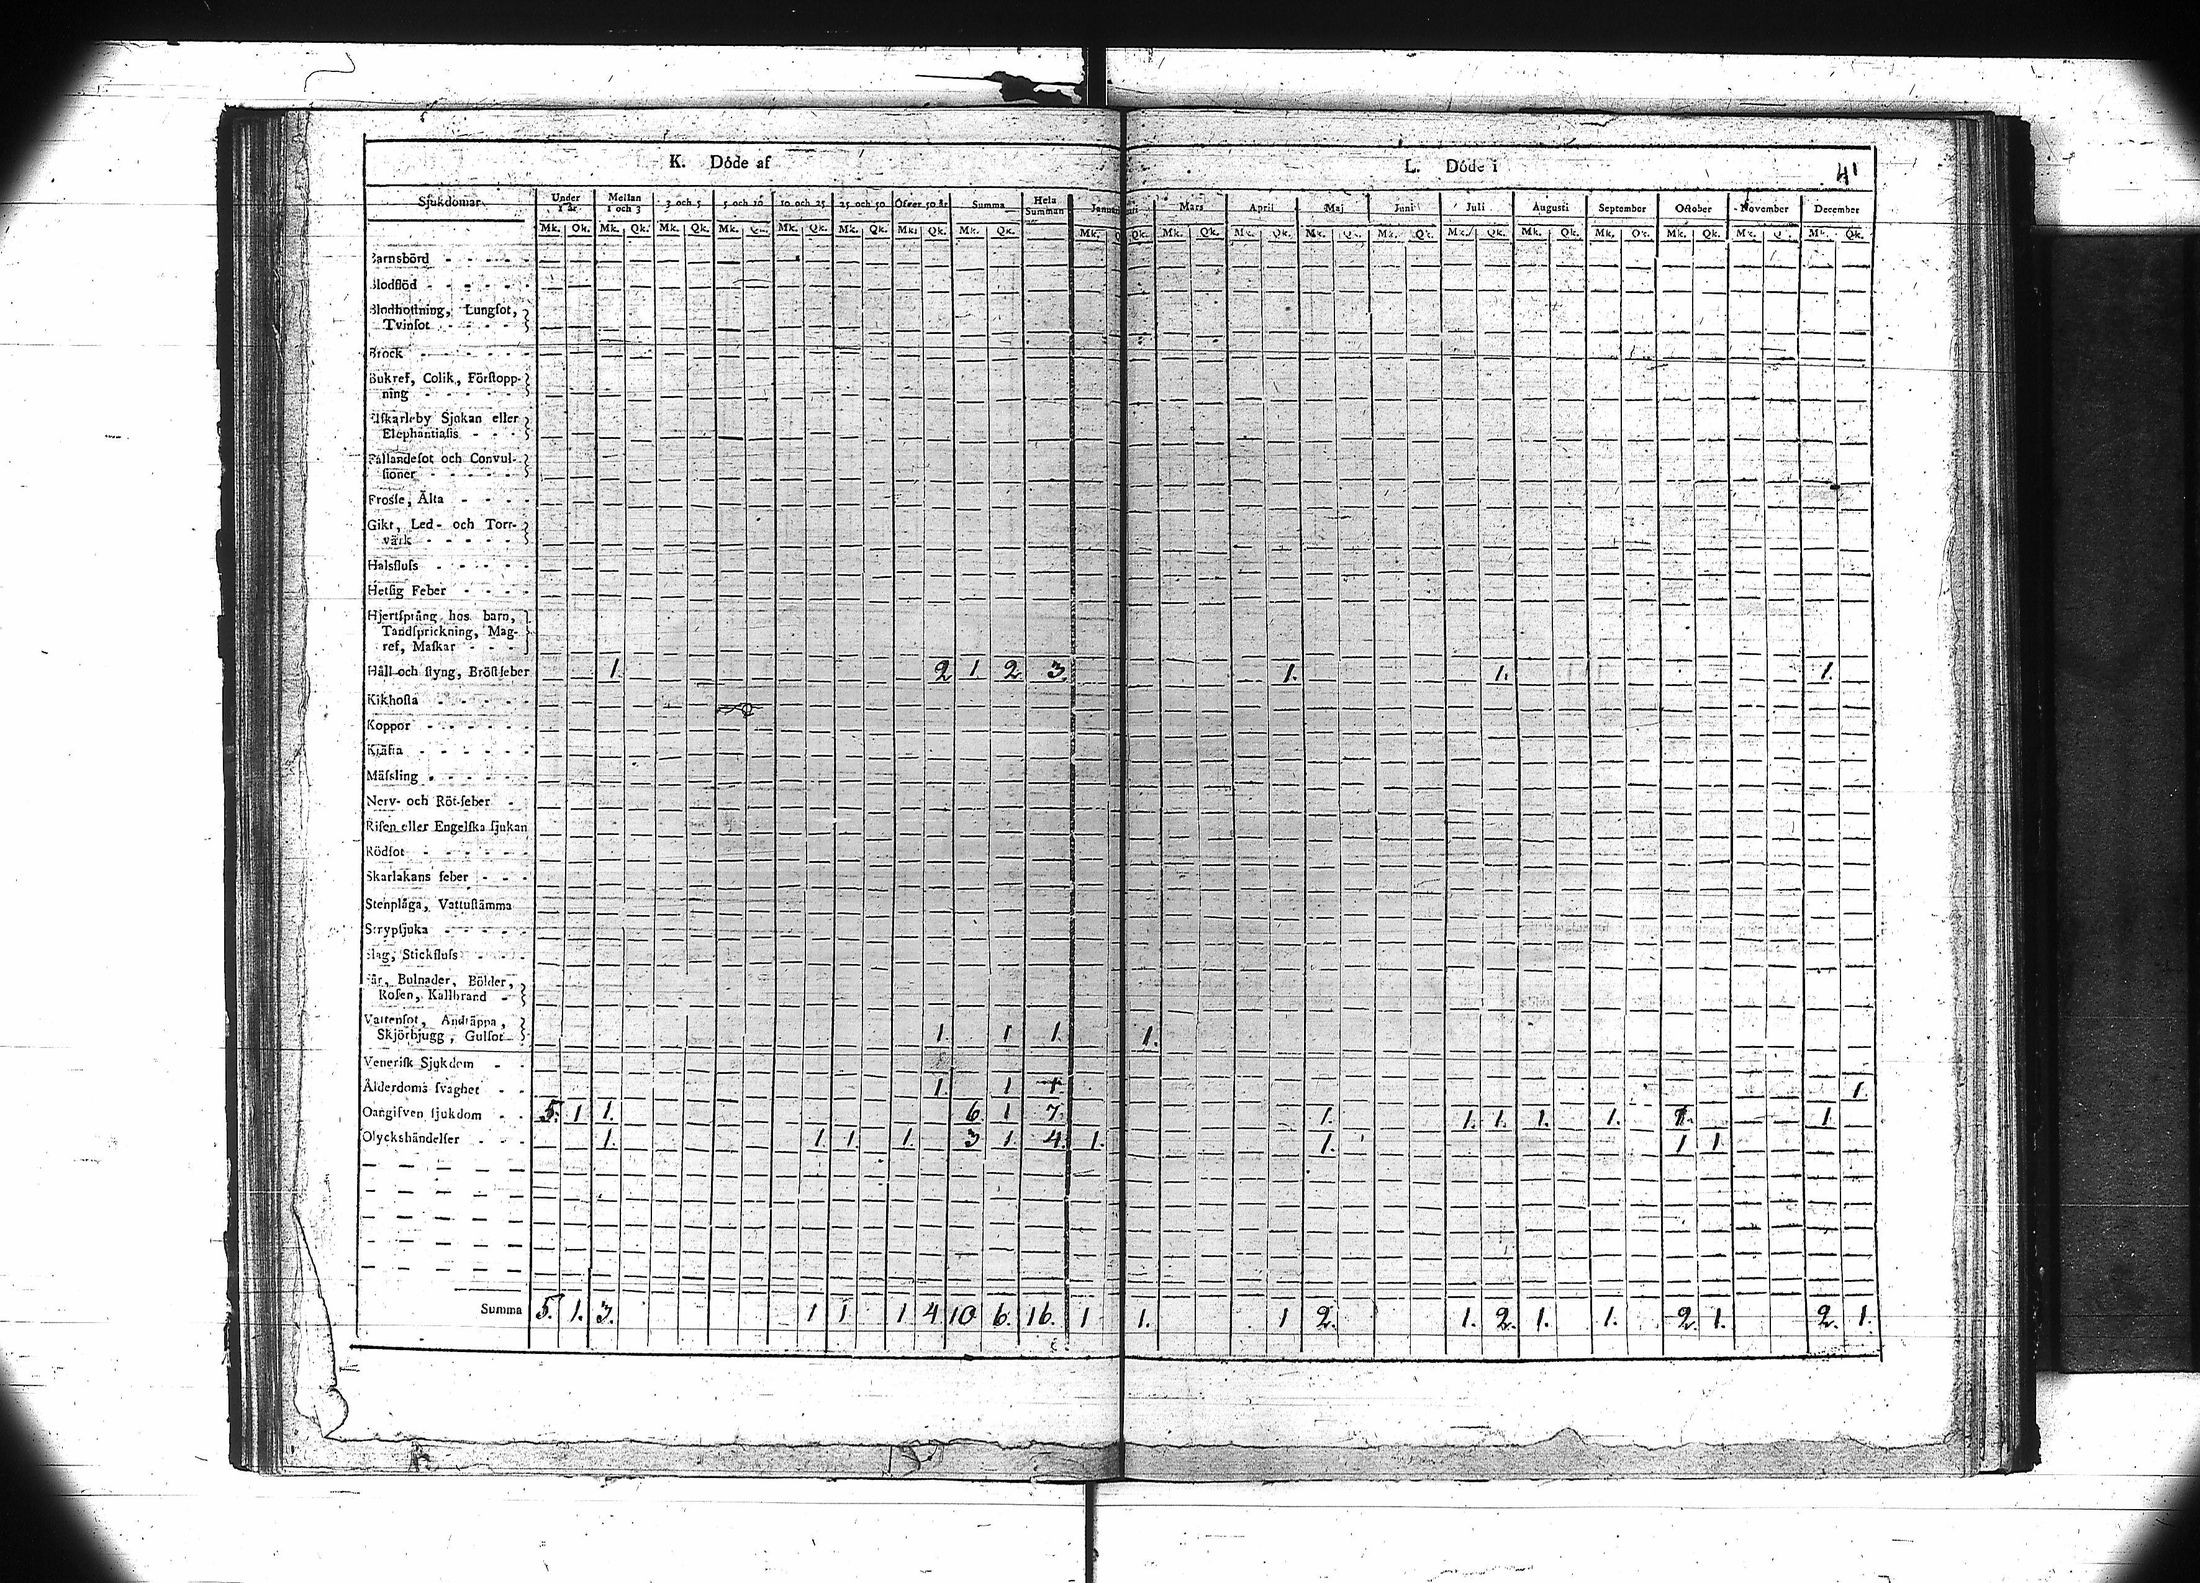 K. Döde af
L. Döde i
41
Sjukdomar. Under 1 år Mellan 1 och 3 3 och 5 5 och 10 10 och 25 25 och 50 Öfver 50 år Summa Hela Summan Mars April Maj Juni Juli Augusti September October November December
Mk. Qk. Mk. Qk. Mk. Qk. Mk. Qk. Mk. Qk. Mk. Qk. Mk. Qk. Mk. Qk. Mk. Qk. Mk. Qk. Mk. Qk. Mk. Qk. Mk. Qk. Mk. Qk. Mk. Qk. Mk. Qk. Mk. Qk. Mk. Qk. Mk. Qk.
Barnsbörd
Blodflöd
Blodhostning, Lungsot,
Tvinsot
Brock
Bukref, Colik, Förstopp-
ning
Elfkarleby Sjukan eller
Elephantiasis
Fallandesot och Convul-
sioner
Frossa, Älta
Gikt, Led- och Torr-
värk
Halsfluss
Hetsig Feber
Hjertsprång hos barn,
Tandsprickning, Mag-
ref, Maskar
Håll och styng, Bröstfeber 1. 2 1 2 3. 1. 1. 1.
Kikhosta
Koppor
Kjäfia
Mässling
Nerv- och Röt-feber
Risen eller Engelska sjukan
Rödsot
Skarlakans feber
Stenplåga, Vattustämma
Strypsjuka
Slag, Stickfluss
Sår, Bulnader, Bölder,
Rosen, Kallbrand
Vattensot, Andtäppa,
Skjörbjugg, Gulsot 1. 1 1. 1.
Venerisk Sjukdom
Ålderdoms svaghet 1. 1 1. 1.
Oangifven sjukdom 5. 1 1. 6. 1 7. 1. 1. 1. 1. 1. 1. 1.
Olyckshändelser 1. 1. 1. 1. 3 1 4. 1. 1. 1 1.
Summa 5. 1. 3. 1 1 1 4 10 6. 16. 1 1. 1 2. 1. 2. 1. 1. 2. 1. 2. 1.